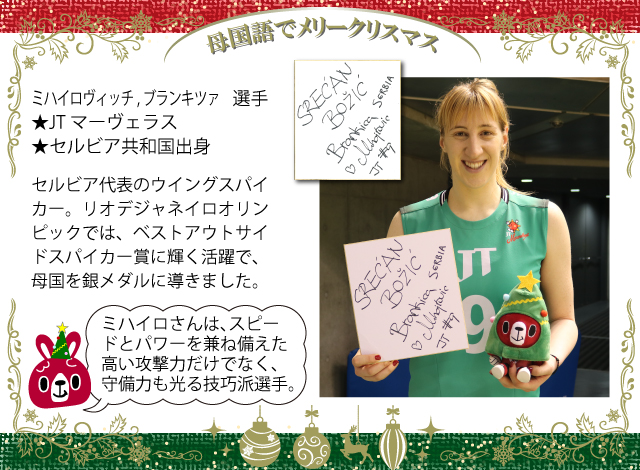 母国語でメリークリスマス
ミハイロヴィッチ,ブランキツァ　選手
★JTマーヴェラス
★セルビア共和国出身
セルビア代表のウイングスパイ
カー。リオデジャネイロオリン
ピックでは、ベストアウトサイ
ドスパイカー賞に輝く活躍で、
母国を銀メダルに導きました。
ミハイロさんは、スピー
ドとパワーを兼ね備えた
高い攻撃力だけでなく、
守備力も光る技巧派選手。
SREĆAN
BOŽIĆ
SERBIA
Brankica
♡ Mihajlović
JT #9
JT
9
SREĆAN
BOŽIĆ
SERBIA
Brankica
♡ Mihajlović
JT #9